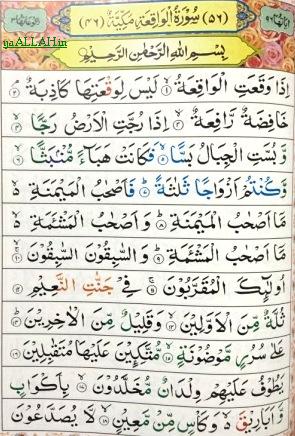 yaALLAH.in
(٥٦) سُوْرَةُ الْوَاقِعَةِ مَكِّيَّةٌ (٤٦)
بِسْمِ اللّٰهِ الرَّحْمٰنِ الرَّحِيْمِ
اِذَا وَقَعَتِ الْوَاقِعَةُ ۙ١ لَيْسَ لِوَقْعَتِهَا كَاذِبَةٌ ۘ٢
خَافِضَةٌ رَّافِعَةٌ ۙ٣ اِذَا رُجَّتِ الْاَرْضُ رَجًّا ۙ٤
وَّبُسَّتِ الْجِبَالُ بَسًّا ۙ٥ فَكَانَتْ هَبَآءً مُّنْۢبَثًّا ۙ٦
وَّكُنْتُمْ اَزْوَاجًا ثَلٰثَةً ؕ٧ فَاَصْحٰبُ الْمَيْمَنَةِ ۙ
مَاۤ اَصْحٰبُ الْمَيْمَنَةِ ؕ٨ وَاَصْحٰبُ الْمَشْـَٔمَةِ ۙ
مَاۤ اَصْحٰبُ الْمَشْـَٔمَةِ ؕ٩ وَالسّٰبِقُوْنَ السّٰبِقُوْنَ ۚۙ١٠
اُولٰٓئِكَ الْمُقَرَّبُوْنَ ۚ١١ فِيْ جَنّٰتِ النَّعِيْمِ ١٢
ثُلَّةٌ مِّنَ الْاَوَّلِيْنَ ۙ١٣ وَقَلِيْلٌ مِّنَ الْاٰخِرِيْنَ ؕ١٤
عَلٰى سُرُرٍ مَّوْضُوْنَةٍ ۙ١٥ مُّتَّكِـِٕيْنَ عَلَيْهَا مُتَقٰبِلِيْنَ ١٦
يَطُوْفُ عَلَيْهِمْ وِلْدَانٌ مُّخَلَّدُوْنَ ۙ١٧ بِاَكْوَابٍ
وَّاَبَارِيْقَ ۙ وَكَاْسٍ مِّنْ مَّعِيْنٍ ۙ١٨ لَّا يُصَدَّعُوْنَ